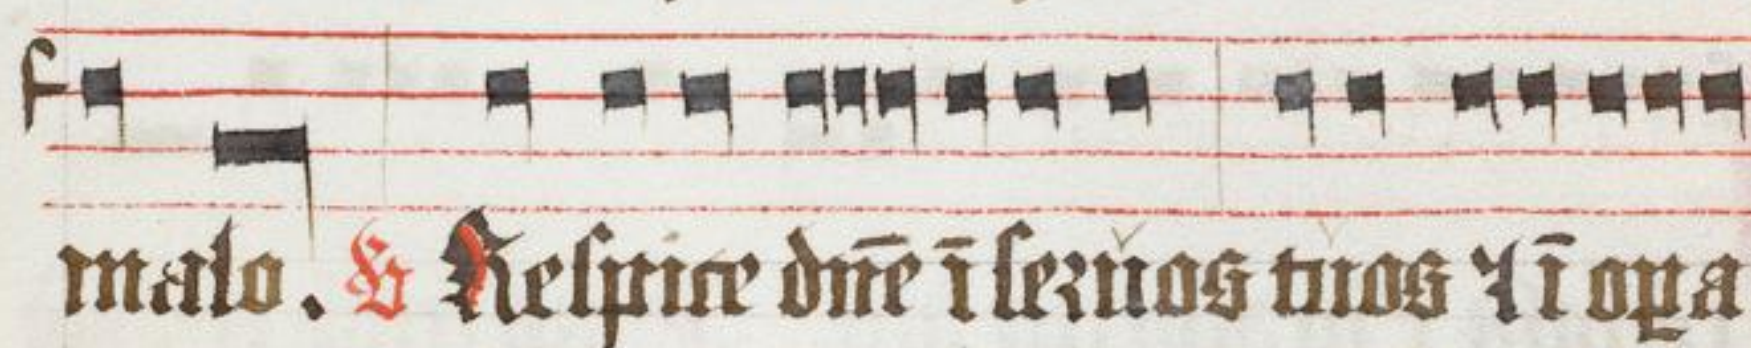 malo. ℣ Respice dn̄e ī seruos tuos ⁊ ī oꝑa